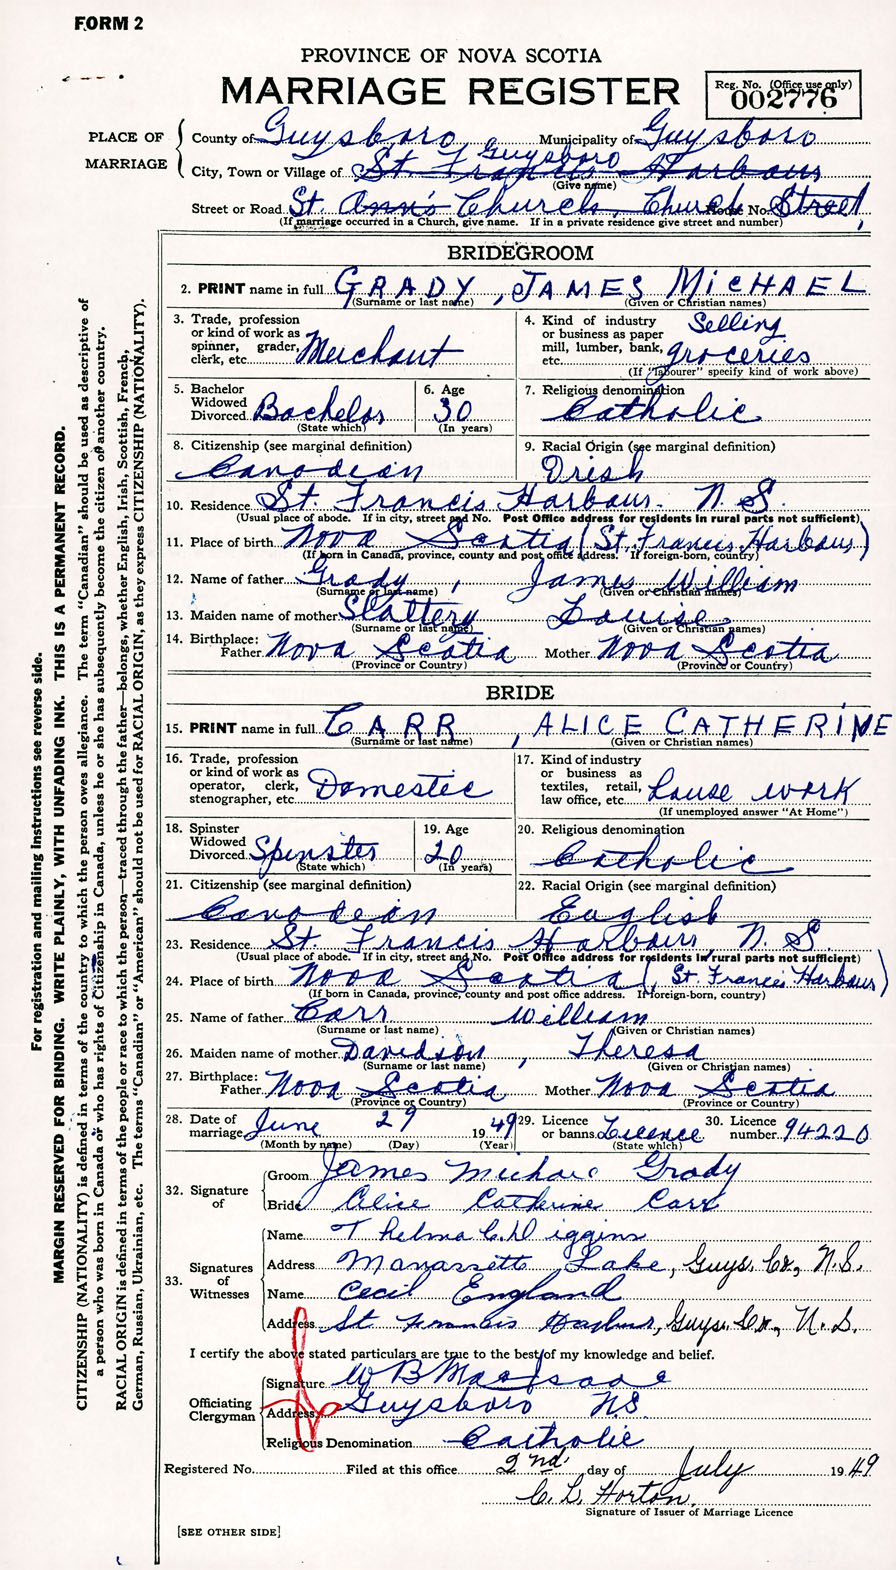 FORM 2
PROVINCE OF NOVA SCOTIA
MARRIAGE REGISTER
Reg. No. (Office use only)
002776
PLACE OF MARRIAGE
County of Guysboro Municipality of Guysboro
Guysboro
City, Town or Village of St. Francis Harbour
(Give name)
Street or Road St. Ann's Church, Church House No. Street,
(If marriage occurred in a Church, give name. If in a private residence give street and number)
BRIDEGROOM
2. PRINT name in full GRADY, JAMES MICHAEL
(Surname or last name) (Given or Christian names)
3. Trade, profession or kind of work as spinner, grader, clerk, etc. Merchant
4. Kind of industry or business as paper mill, lumber, bank, etc. Selling groceries
(If "labourer" specify kind of work above)
5. Bachelor Widowed Divorced Bachelor
(State which)
6. Age 30
(In years)
7. Religious denomination
Catholic
8. Citizenship (see marginal definition)
Canadian
9. Racial Origin (see marginal definition)
Irish
10. Residence St. Francis Harbour. N. S.
(Usual place of abode. If in city, street and No. Post Office address for residents in rural parts not sufficient)
11. Place of birth Nova Scotia (St. Francis Harbour)
(If born in Canada, province, county and post office address. If foreign-born, country)
12. Name of father Grady, James William
(Surname or last name) (Given or Christian names)
13. Maiden name of mother Slattery Louise
(Surname or last name) (Given or Christian names)
14. Birthplace: Father Nova Scotia Mother Nova Scotia
(Province or Country) (Province or Country)
BRIDE
15. PRINT name in full CARR, ALICE CATHERINE
(Surname or last name) (Given or Christian names)
16. Trade, profession or kind of work as operator, clerk, stenographer, etc. Domestic
17. Kind of industry or business as textiles, retail, law office, etc. House work
(If unemployed answer "At Home")
18. Spinster Widowed Divorced Spinster
(State which)
19. Age 20
(In years)
20. Religious denomination
Catholic
21. Citizenship (see marginal definition)
Canadian
22. Racial Origin (see marginal definition)
English
23. Residence St. Francis Harbour, N. S.
(Usual place of abode. If in city, street and No. Post Office address for residents in rural parts not sufficient)
24. Place of birth Nova Scotia (St. Francis Harbour)
(If born in Canada, province, county and post office address. If foreign-born, country)
25. Name of father Carr William
(Surname or last name) (Given or Christian names)
26. Maiden name of mother Davidson, Theresa
(Surname or last name) (Given or Christian names)
27. Birthplace: Father Nova Scotia Mother Nova Scotia
(Province or Country) (Province or Country)
28. Date of marriage June 29 1949
(Month by name) (Day) (Year)
29. Licence or banns Licence
(State which)
30. Licence number 94220
32. Signature of
Groom James Michael Grady
Bride Alice Catherine Carr
33. Signatures of Witnesses
Name Thelma C. Diggins
Address Manassette Lake, Guys. Co., N.S.
Name Cecil England
Address St Francis Harbour, Guys. Co., N. S.
I certify the above stated particulars are true to the best of my knowledge and belief.
Officiating Clergyman
Signature W B MacIsaac
Address Guysboro N.S.
Religious Denomination Catholic
Registered No. Filed at this office 2nd day of July 1949
C. L. Horton
Signature of Issuer of Marriage Licence
[SEE OTHER SIDE]
For registration and mailing instructions see reverse side.
MARGIN RESERVED FOR BINDING. WRITE PLAINLY, WITH UNFADING INK. THIS IS A PERMANENT RECORD.
CITIZENSHIP (NATIONALITY) is defined in terms of the country to which the person owes allegiance. The term "Canadian" should be used as descriptive of
a person who was born in Canada or who has rights of Citizenship in Canada, unless he or she has subsequently become the citizen of another country.
RACIAL ORIGIN is defined in terms of the people or race to which the person—traced through the father—belongs, whether English, Irish, Scottish, French,
German, Russian, Ukrainian, etc. The terms "Canadian" or "American" should not be used for RACIAL ORIGIN, as they express CITIZENSHIP (NATIONALITY).